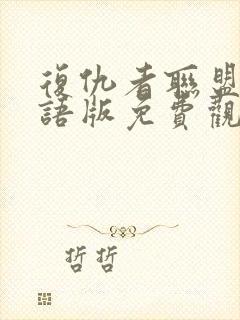 復仇者聯盟
語版免費觀
哲哲